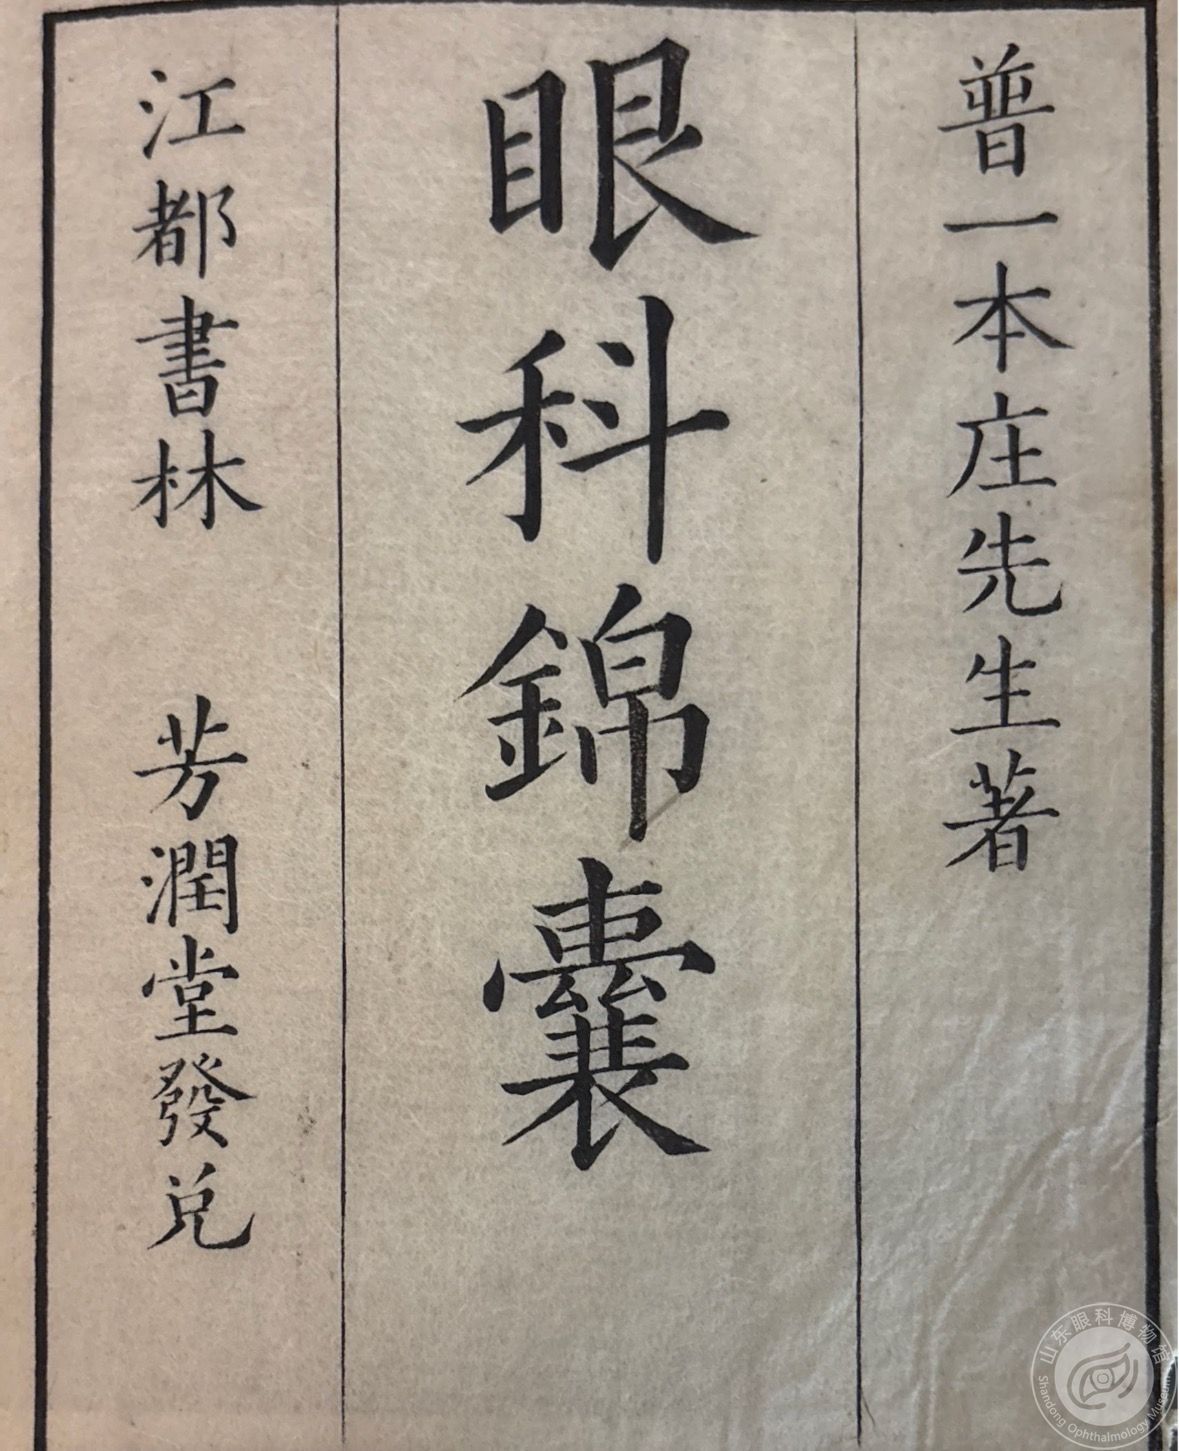 普一本庄先生著
眼科錦囊
江都書林 芳潤堂發兌
山东眼科博物馆
Shandong Ophthalmology Museum